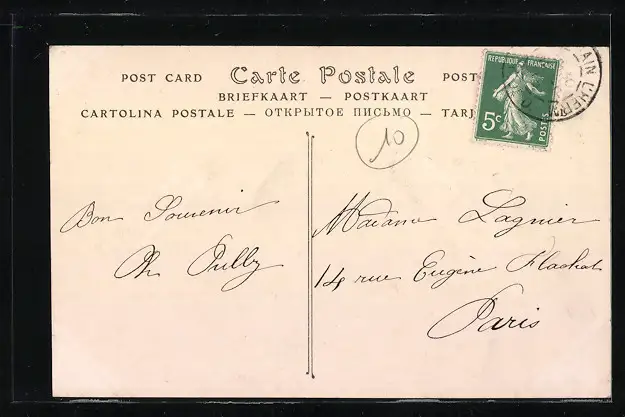 POST CARD Carte Postale POST
BRIEFKAART — POSTKAART
CARTOLINA POSTALE — ОТКРЫТОЕ ПИСЬМО — TARJ
REPUBLIQUE FRANÇAISE
5c
POSTES
10
Bon Souvenir
Madame Lagnier
14 rue Eugène Flachat
Paris